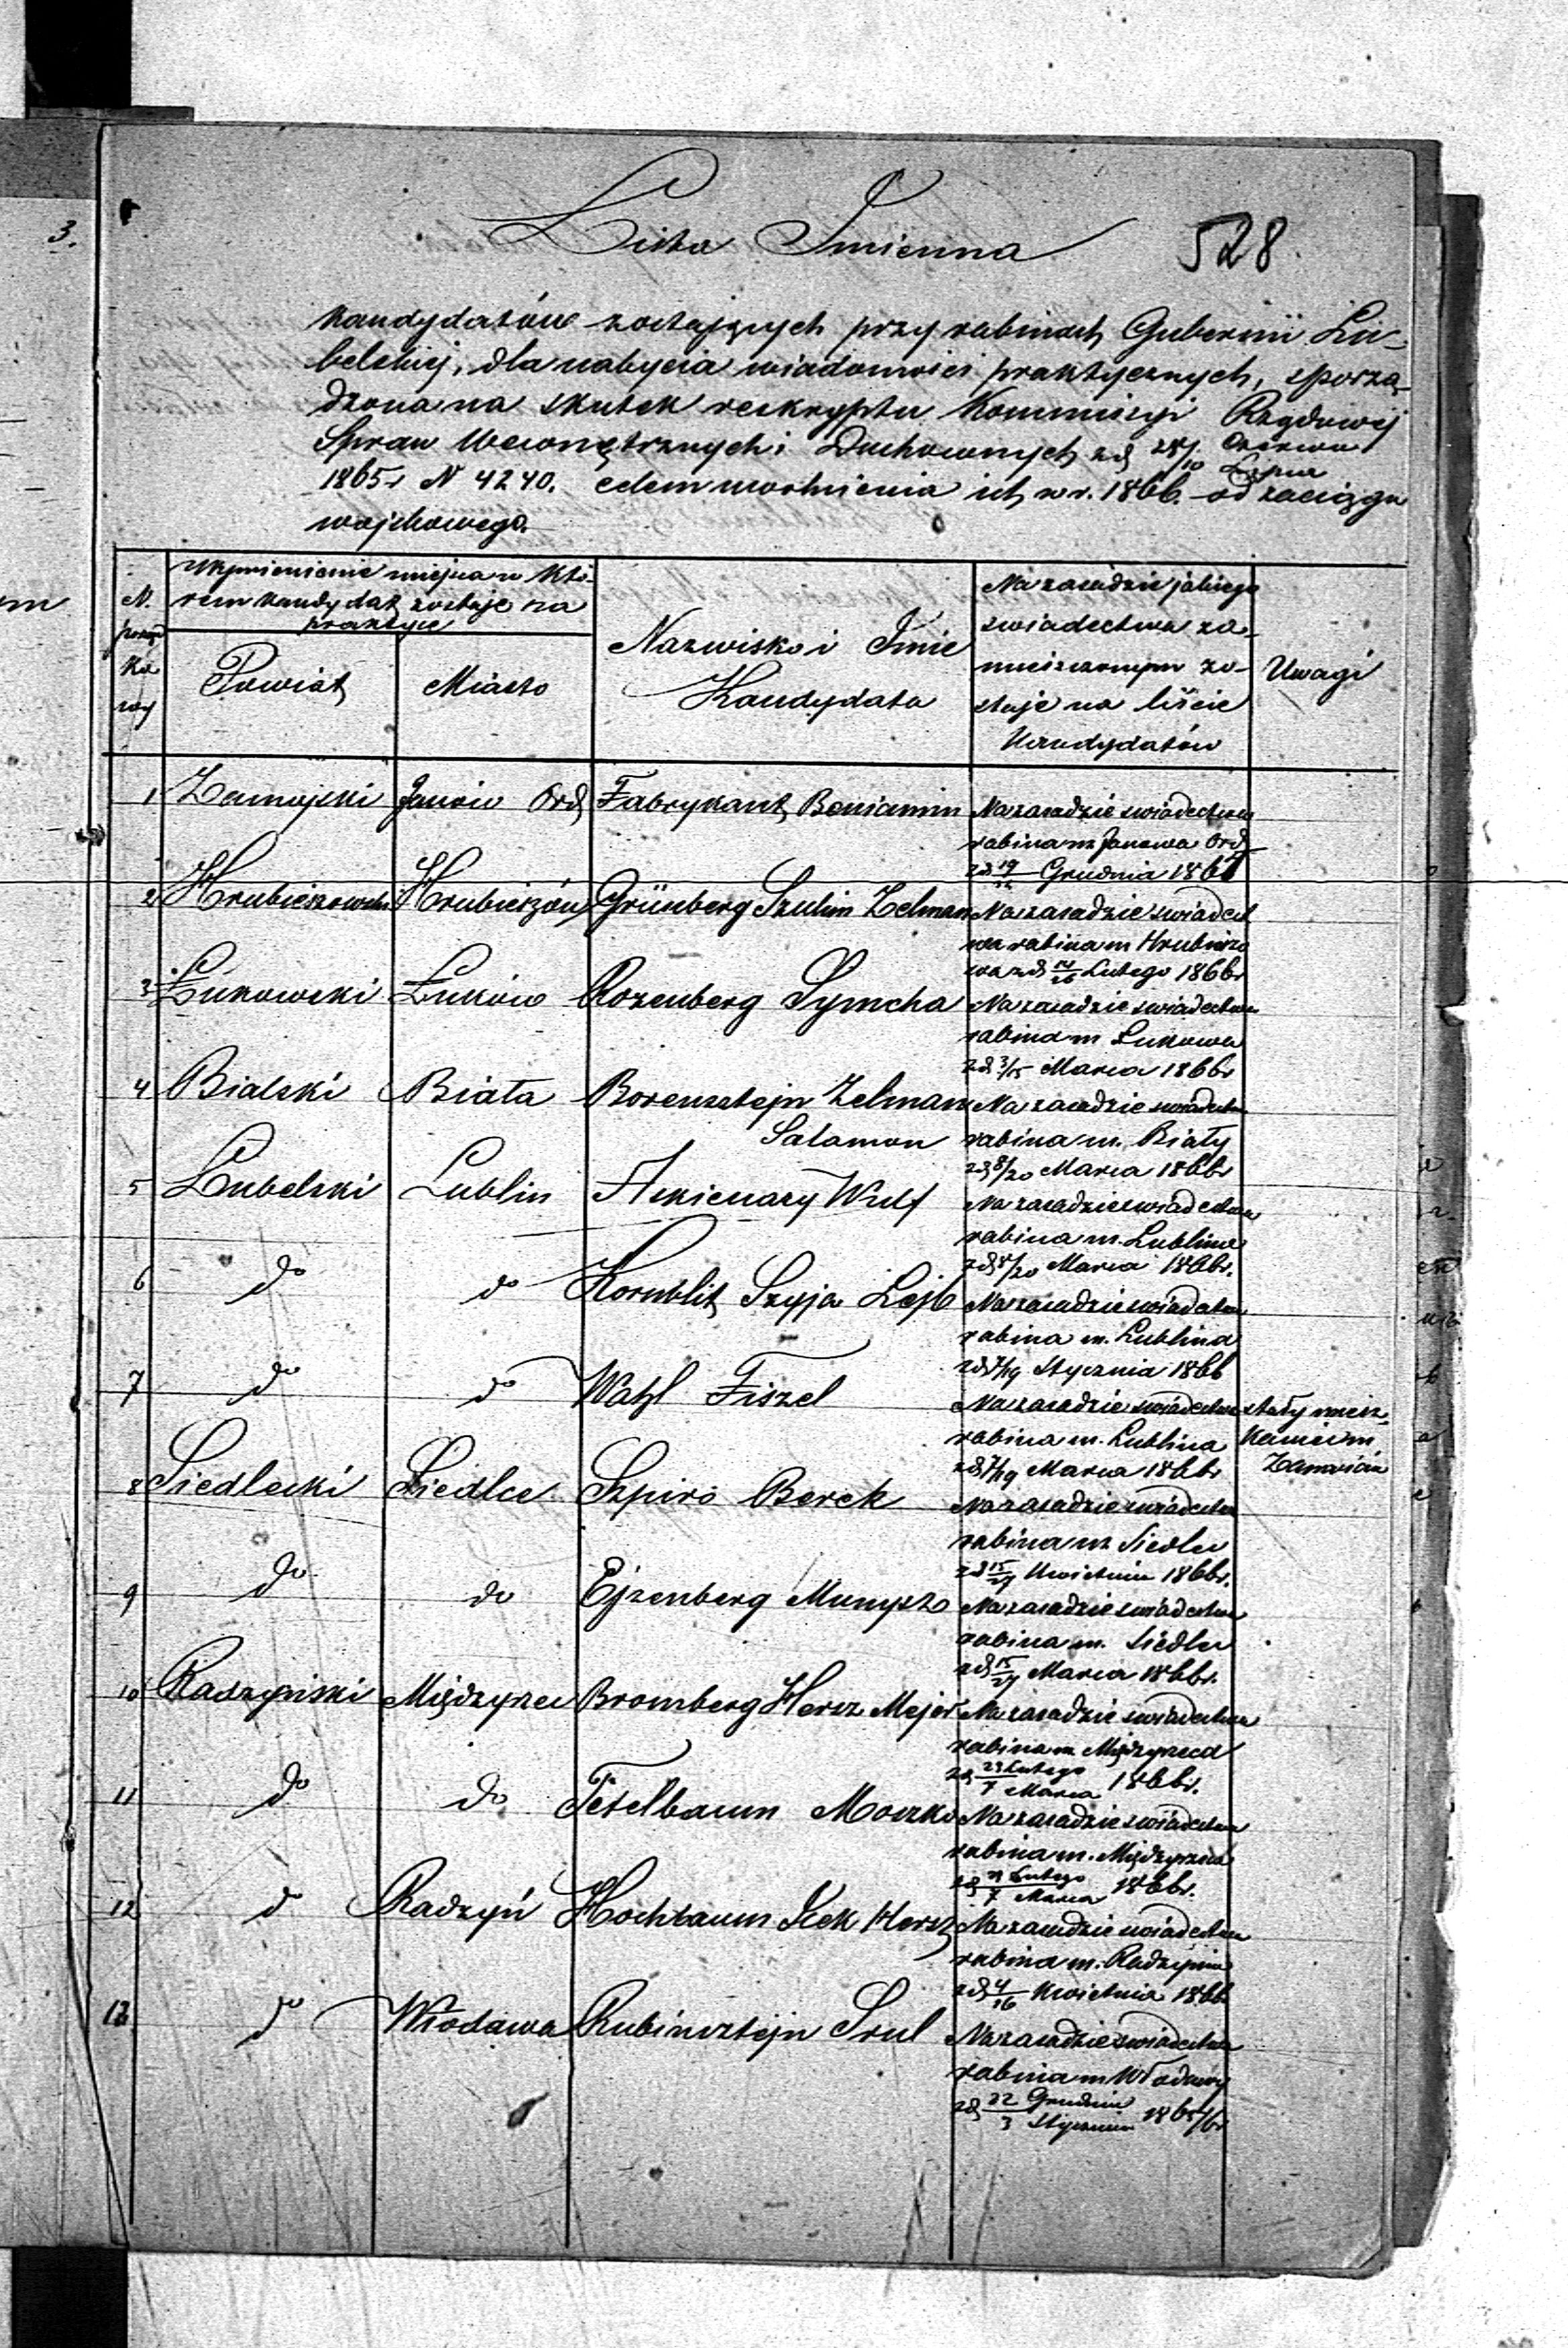 3.
Lista Imienna
528.
Kandydatów zostających przy rabinach Gubernii Lu-
belskiej, dla nabycia wiadomości praktycznych, sporzą-
dzona na skutek reskryptu Kommissyi Rządowej
Spraw Wewnętrznych i Duchownych z d. 28/10 Czerwca/Lipca
1865 r N 4240. celem uwolnienia ich w r. 1866. od zaciągu
wojskowego.
N. porządkowy
Wymienienie miejsca w któ-
rem Kandydat zostaje na
praktyce
Powiat
Miasto
Nazwisko i Imie
Kandydata
Na zasadzie jakiego
swiadectwa za-
mieszczonym zo-
staje na liście
Kandydatów
Uwagi
1 Zamojski Janów Ord. Fabrykant Beniamin Na zasadzie swiadectwa
rabina m Janowa Ord
z d Grudnia
2 Hrubieszowski Hrubieszów Grünberg Szulim Zelman Na zasadzie swiadect
wa rabina m Hrubieszo
wa z d 14/26 Lutego 1866 r
3 Łukowski Łuków Rozenberg Symcha Na zasadzie swiadectwa
rabina m Łukowa
z d 3/15 Marca 1866 r
4 Bialski Biała Borensztejn Zelman Na zasadzie swiadectwa
Salamon rabina m. Biały
z d 8/20 Marca 1866 r
5 Lubelski Lublin Askienazy Wulf Na zasadzie swiadectwa
rabina m. Lublina
z d 8/20 Marca 1866 r.
6 do do Kornblit Szyja Lejb Na zasadzie swiadectwa
rabina m. Lublina
z d 7/19 Stycznia 1866
7 do do Wahl Fiszel Na zasadzie swiadectwa stały miesz
rabina m. Lublina kaniec m
z d 7/19 Marca 1866 r Zamościa
8 Siedlecki Siedlce Szpiro Berek Na zasadzie swiadectwa
rabina m Siedlec
z d 15/27 Kwietnia 1866 r.
9 do do Ejzenberg Munysz Na zasadzie swiadectwa
rabina m. Siedlec
z d 15/27 Marca 1866 r.
10 Radzyński Międzyrzec Bromberg Hersz Mejer Na zasadzie swiadectwa
rabina m Międzyrzeca
z d 23 Lutego/7 Marca 1866 r.
11 do do Tetelbaum Moszko Na zasadzie swiadectwa
rabina m. Międzyrzeca
z d Lutego/7 Marca 1866 r.
12 do Radzyń Hochbaum Icek Hersz Na zasadzie swiadectwa
rabina m. Radzynia
z d 4/16 Kwietnia 1866
13 do Włodawa Rubinsztejn Srul Na zasadzie swiadectwa
rabina m Włodawy
z d 22 Grudnia/3 Stycznia 1865/6 r